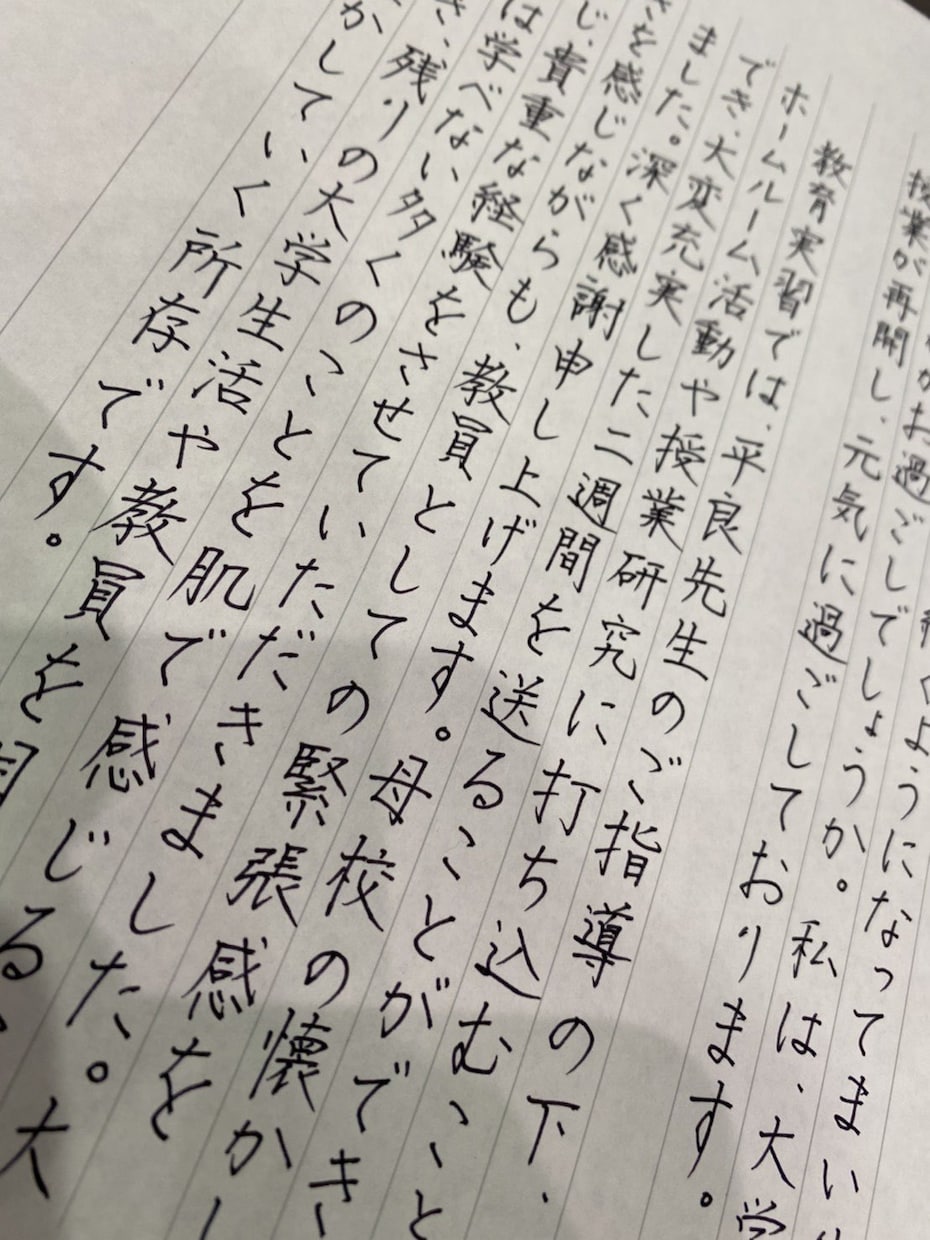 続くようになってまい
がお過ごしでしょうか。私は、大学
授業が再開し、元気に過ごしております。
教育実習では、平良先生のご指導の下、
ホームルーム活動や授業研究に打ち込むこと
でき、大変充実した二週間を送ることができ
ました。深く感謝申し上げます。母校の懐かし
さを感じながらも、教員としての緊張感を
じ、貴重な経験をさせていただきました。大
は学べない多くのことを肌で感じる
さ、残りの大学生活や教員を
かしていく所存です。